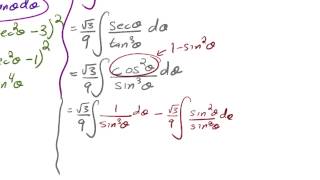 nθdθ
sec²θ - 3)²
ec²θ - 1)²
an⁴θ
√3/9 ∫ secθ/tan³θ dθ
1-sin²θ
= √3/9 ∫ cos²θ/sin³θ dθ
= √3/9 ∫ 1/sin³θ dθ - √3/9 ∫ sin²θ/sin³θ dθ